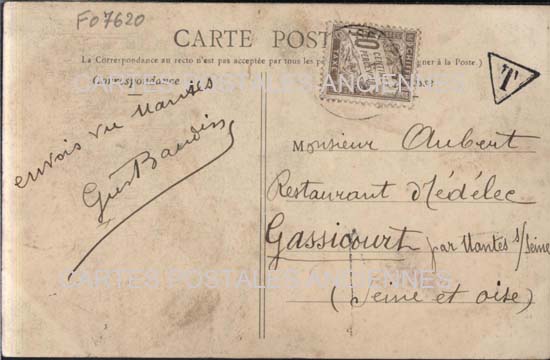 F07620
CARTE POST
La Correspondance au recto n'est pas acceptée par tous les
gner à la Poste.)
Correspondance
T
CARTES POSTALES ANCIENNES
envois vu Nantes
Gus Baudin
Monsieur Aubert
Restaurant Nédélec
Gassicourt par Mantes s/Seine
CARTES POSTALES ANCIENNES
(Seine et oise)